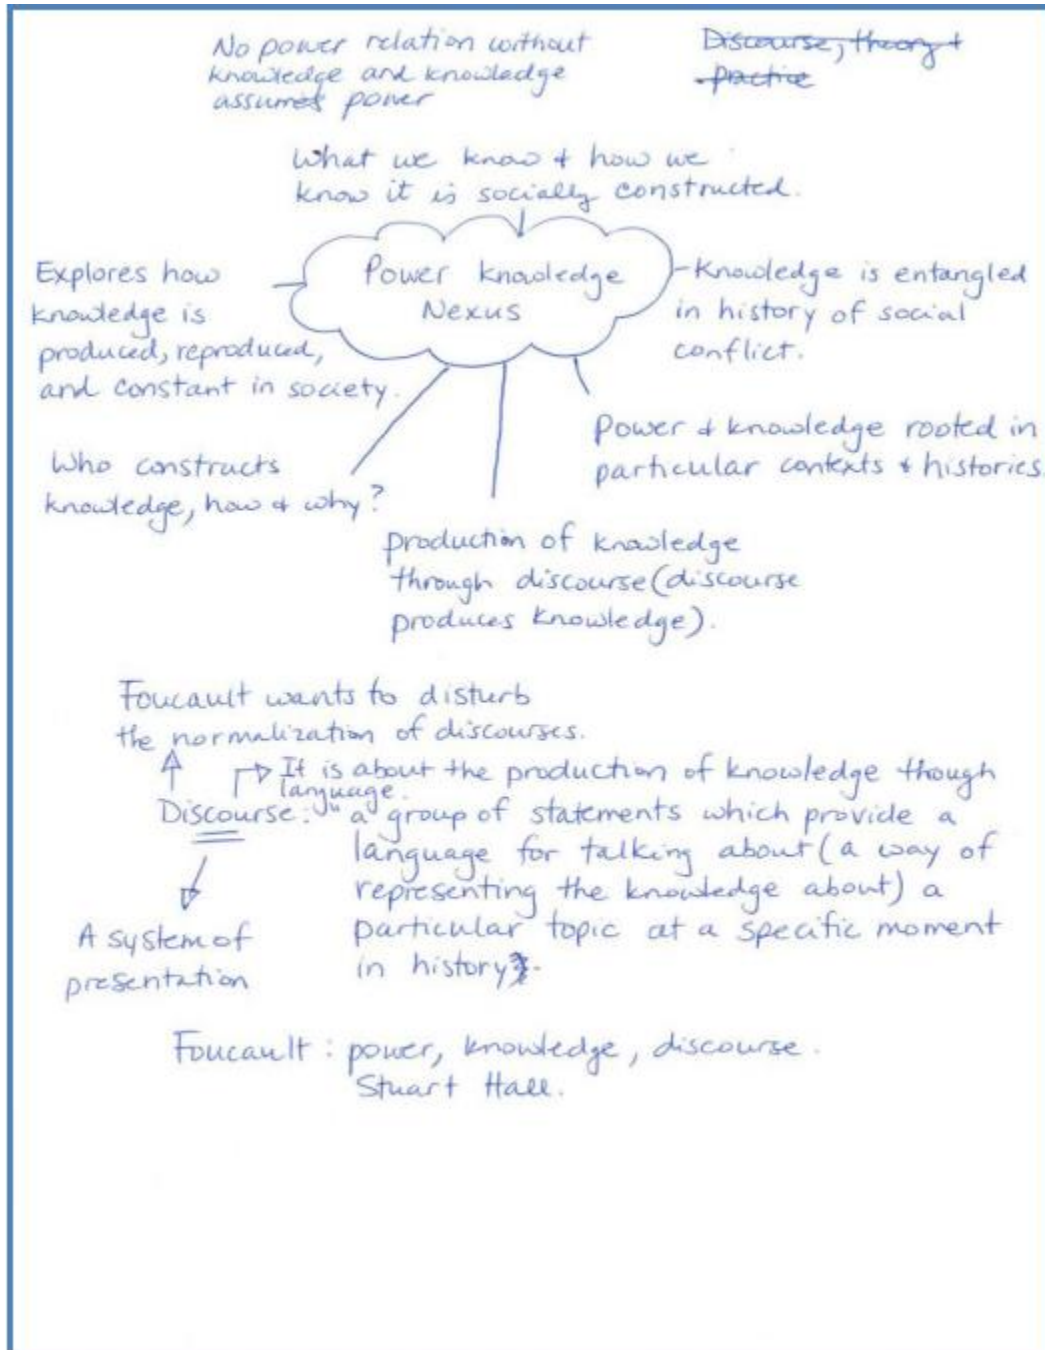 No power relation without
knowledge and knowledge
assumes power
Discourse, theory +
practice
What we know + how we
know it is socially constructed.
Power knowledge
Nexus
Explores how
knowledge is
produced, reproduced,
and constant in society.
-Knowledge is entangled
in history of social
conflict.
Who constructs
knowledge, how + why?
Power + knowledge rooted in
particular contexts + histories.
production of knowledge
through discourse (discourse
produces knowledge).
Foucault wants to disturb
the normalization of discourses.
It is about the production of knowledge though
language.
Discourse: "a group of statements which provide a
language for talking about (a way of
representing the knowledge about) a
particular topic at a specific moment
in history".
A system of
presentation
Foucault: power, knowledge, discourse.
Stuart Hall.